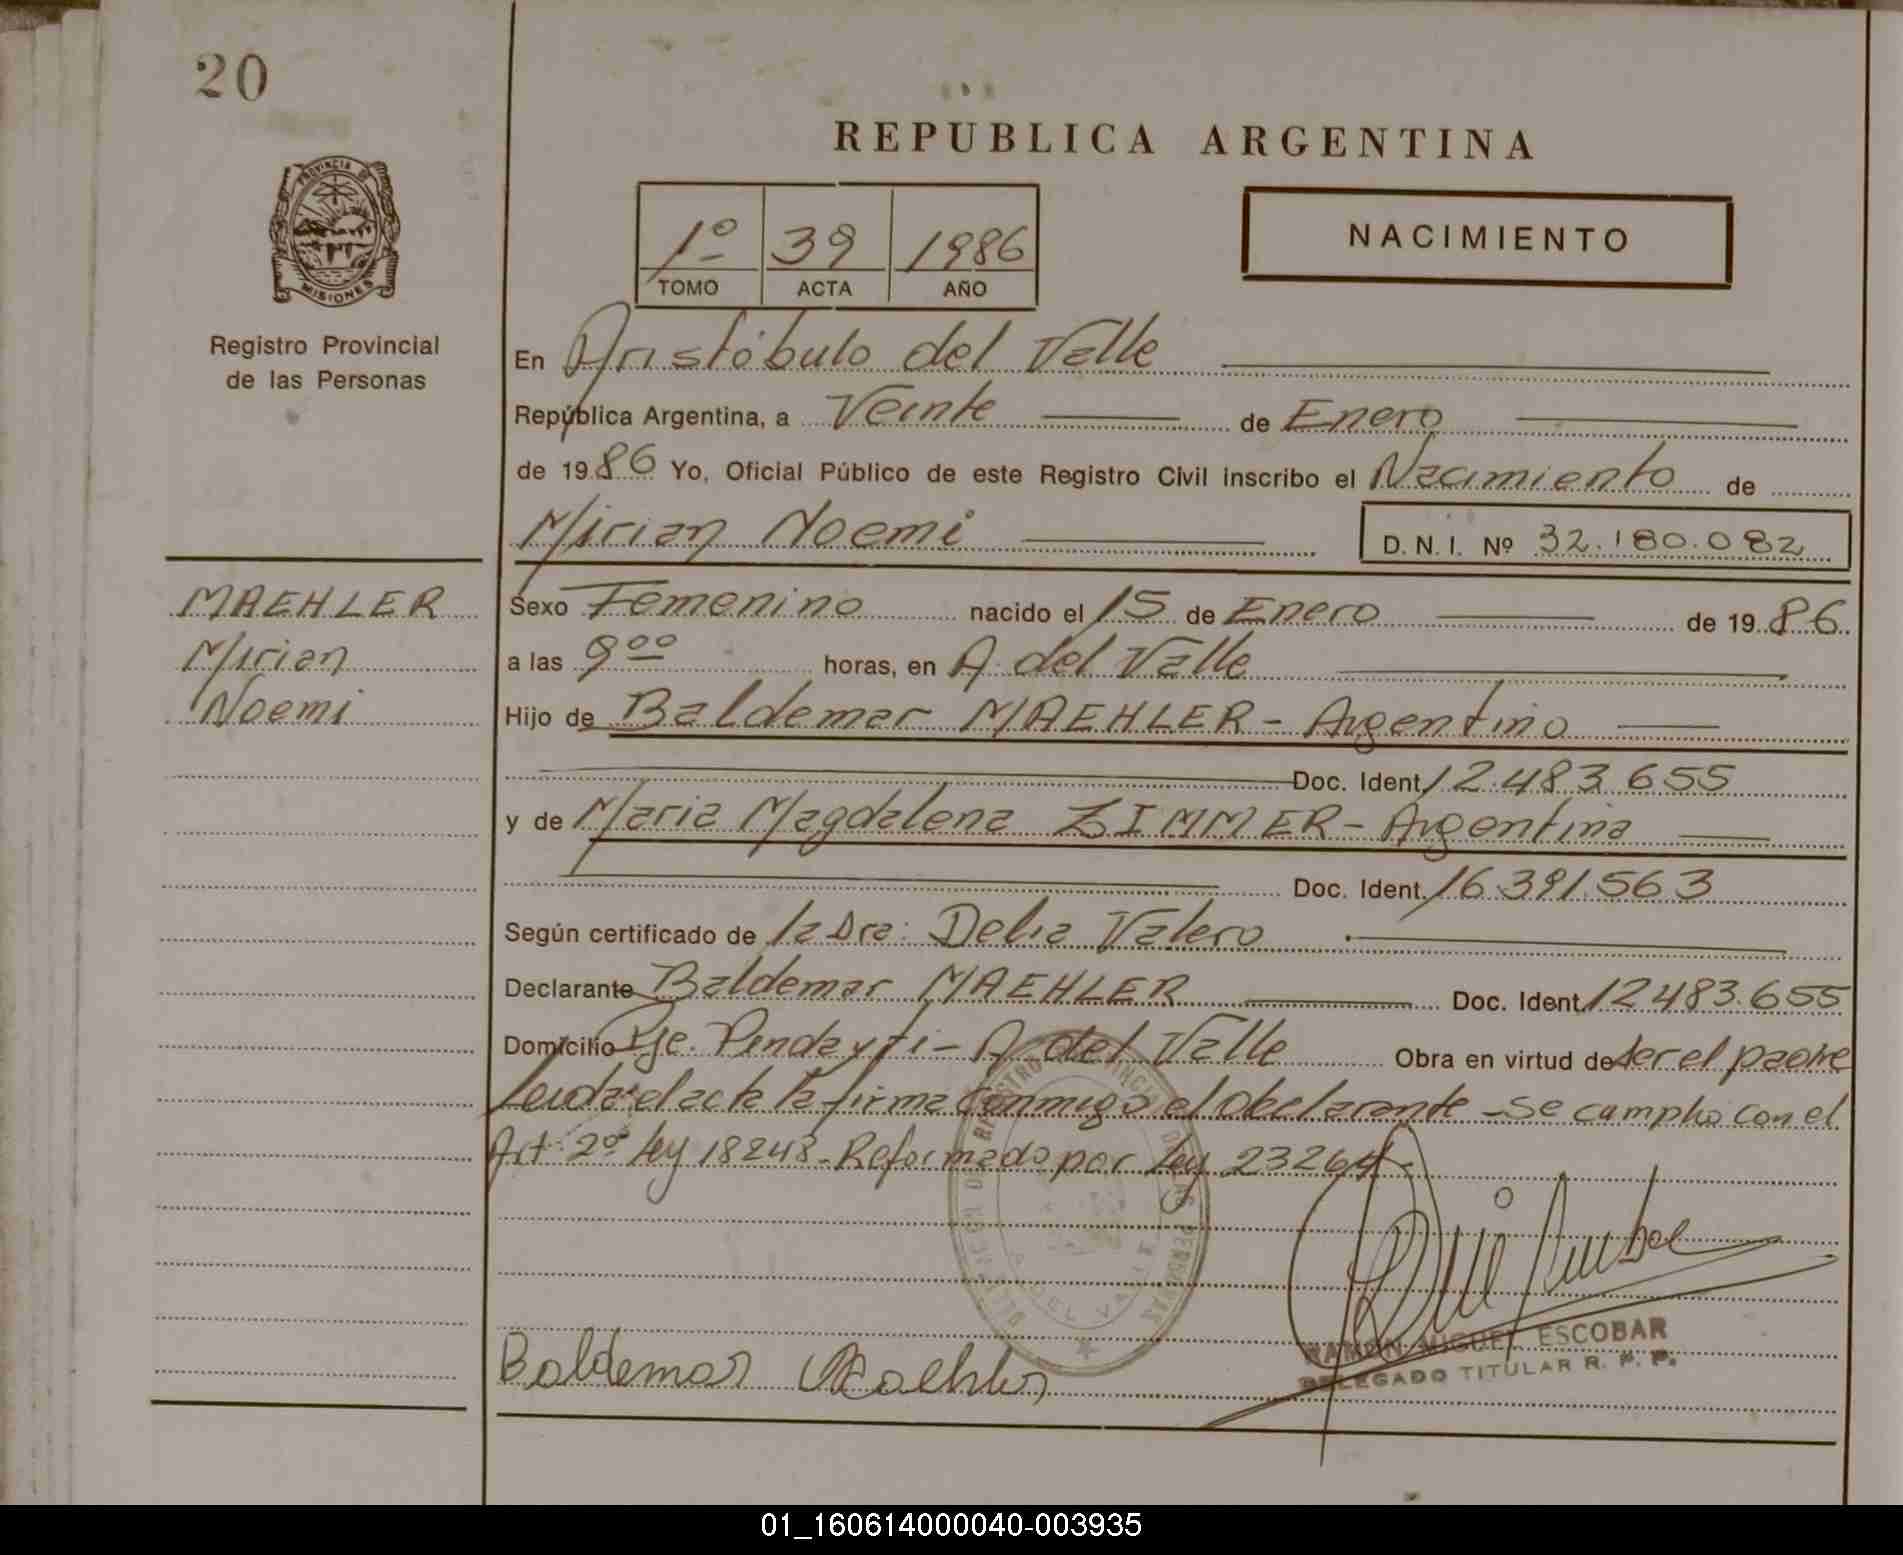 20
REPUBLICA ARGENTINA
PROVINCIA DE
MISIONES
Registro Provincial
de las Personas
1º 39 1986
TOMO ACTA AÑO
NACIMIENTO
En Aristóbulo del Valle
República Argentina, a Veinte de Enero
de 1986 Yo, Oficial Público de este Registro Civil inscribo el Nacimiento de
Mirian Noemi D. N. I. Nº 32.180.082
MAEHLER
Mirian
Noemi
Sexo Femenino nacido el 15 de Enero de 1986
a las 9ºº horas, en A. del Valle
Hijo de Baldemar MAEHLER - Argentino
Doc. Ident. 12.483.655
y de Maria Magdalena ZIMMER - Argentina
Doc. Ident. 16.391.563
Según certificado de la Dra: Delia Valero
Declarante Baldemar MAEHLER Doc. Ident. 12.483.655
Domicilio Pje. Pindayti - A. del Valle Obra en virtud de ser el padre
Leida el acta la firma conmigo el declarante - Se cumplio con el
Art 2º ley 18248 - Reformado por Ley 23264 -
Baldemar Maehler
RAMON MIGUEL ESCOBAR
DELEGADO TITULAR R. P. P.
01_160614000040-003935